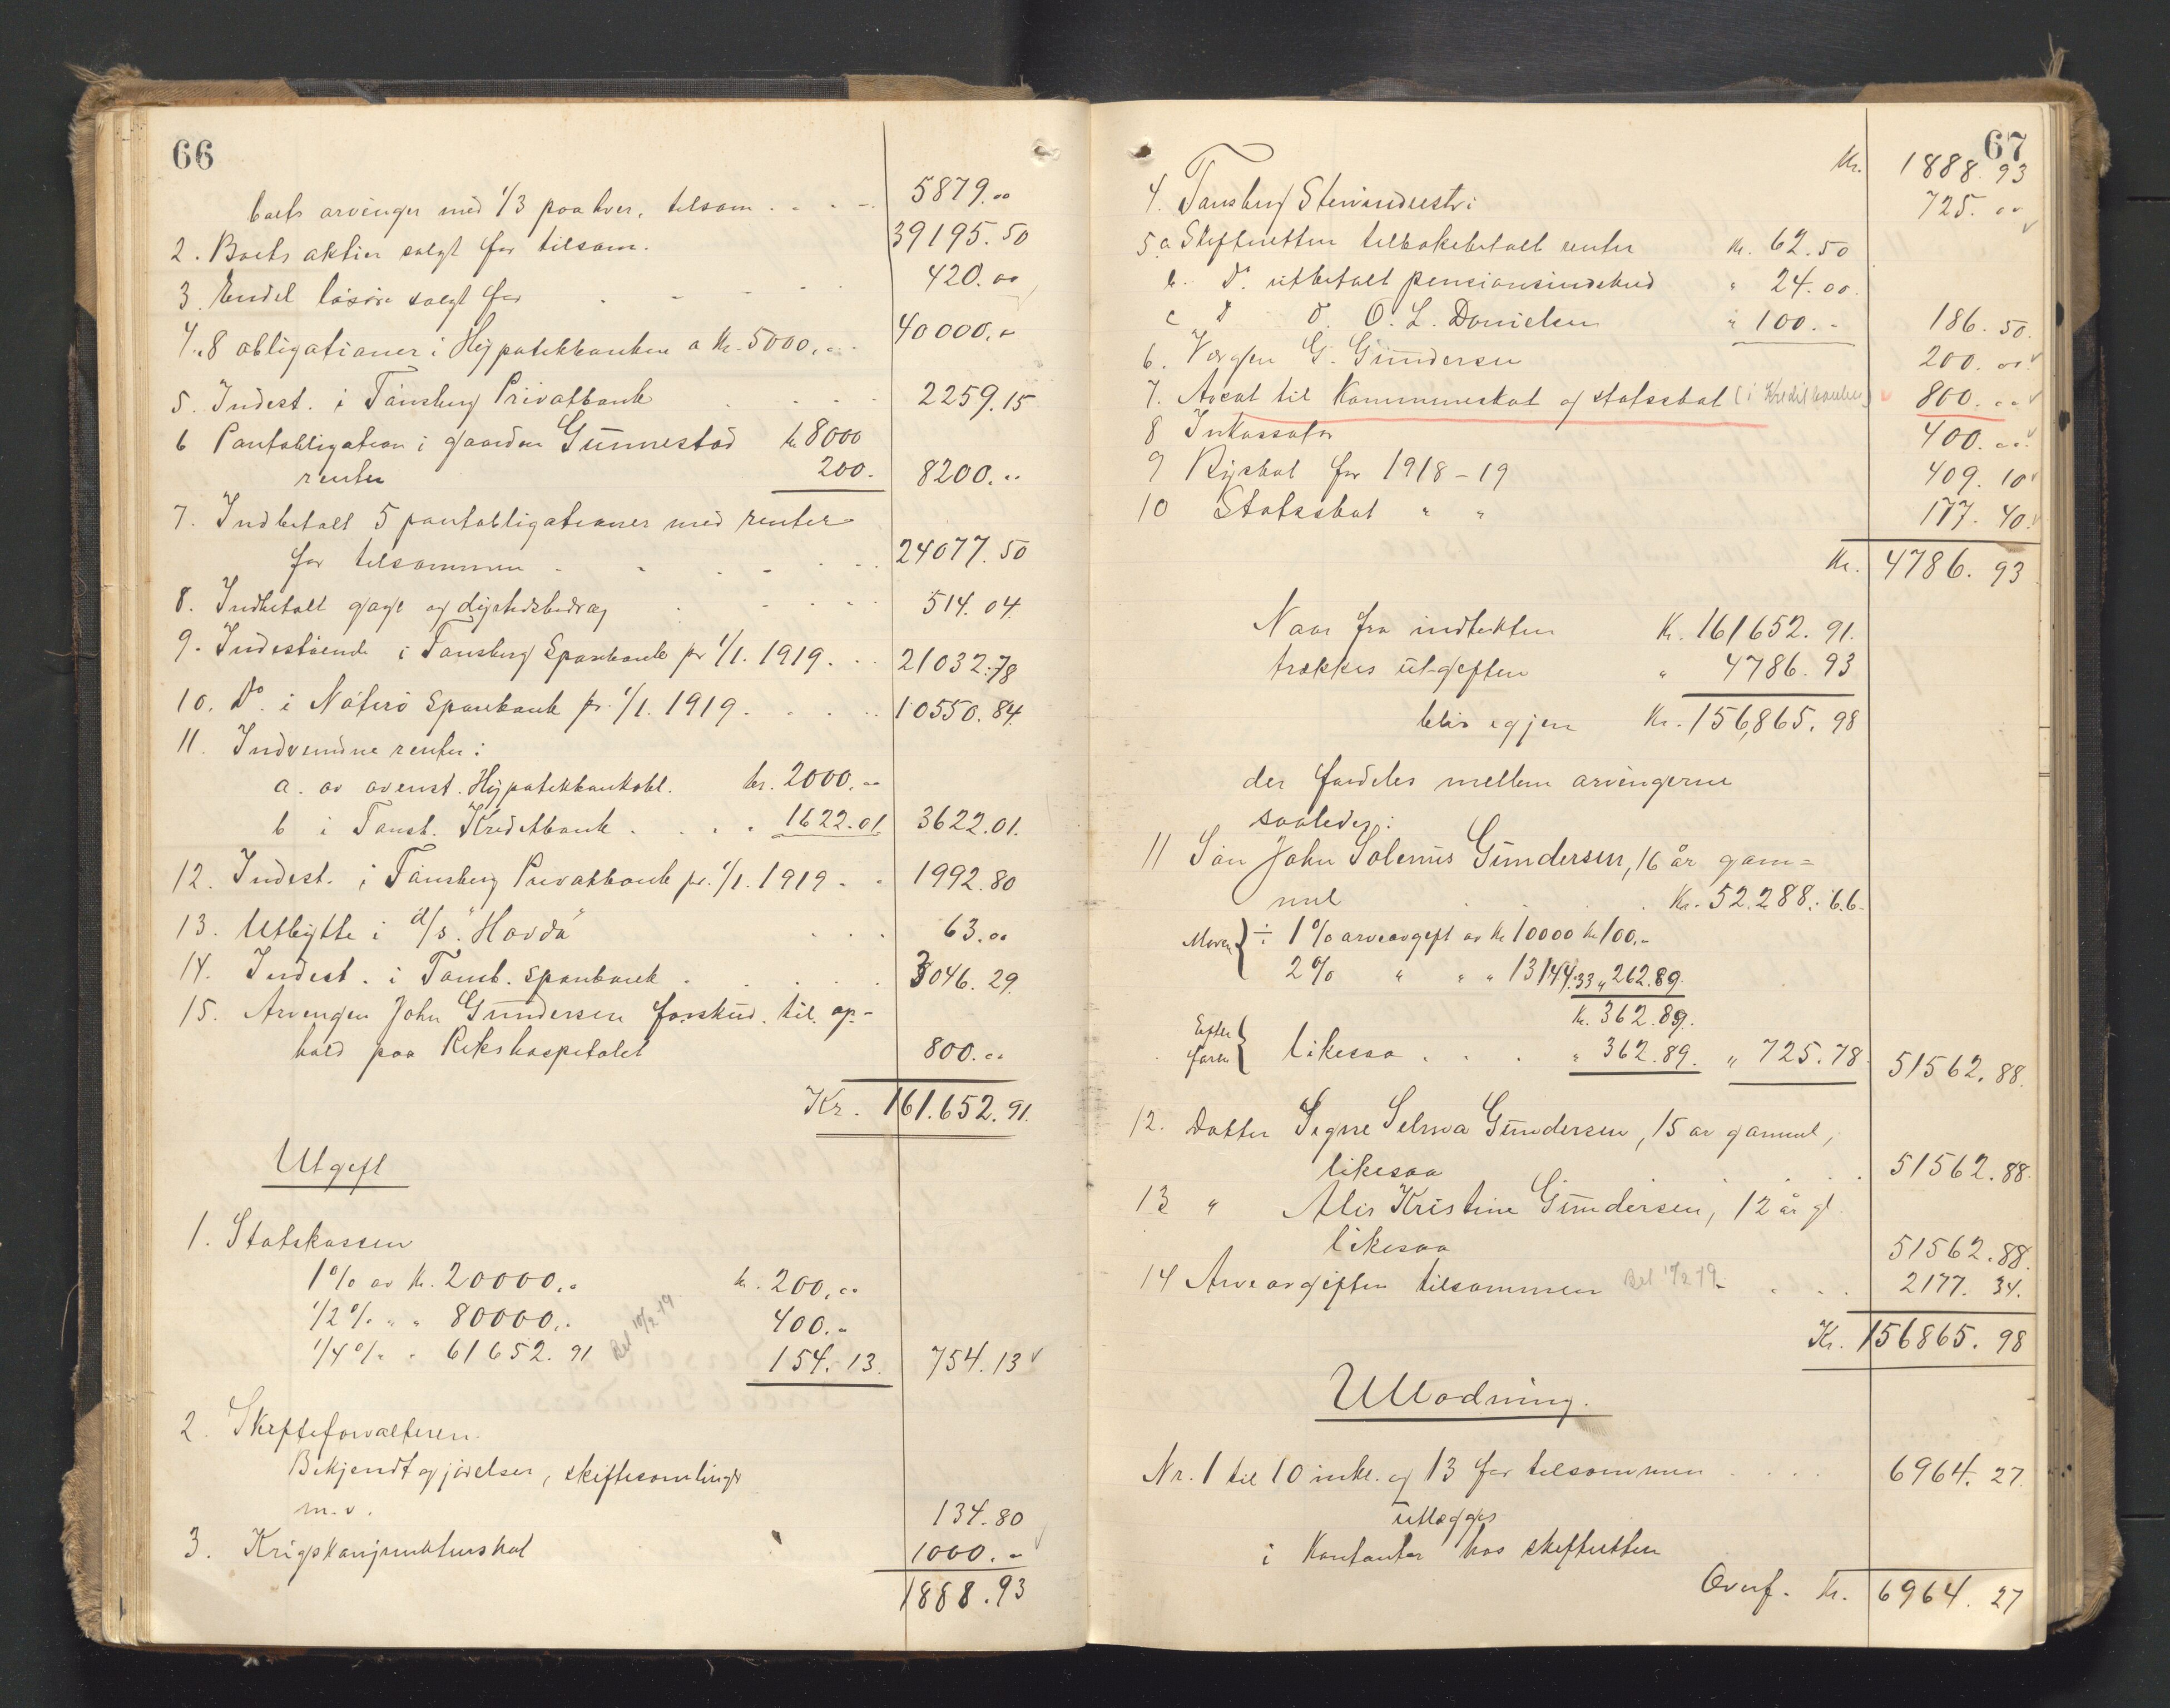 66
boets arvinger med 1/3 paa hver, tilsam. . . . 5879.00
2. Boets aktier solgt for tilsam. 39195.50
3. Endel løsøre solgt for . . . . 420.00
4. 8 obligationer i Hypotekbanken a Kr. 5000,- . 40000.-
5. Indest. i Tønsberg Privatbank . . . . 2259.15
6 Pantobligation i gaarden Gunnestad kr 8000
renter 200. 8200.-
7. Indbetalt 5 pantobligationer med renter
for tilsammen . . . . . 24077.50
8. Indbetalt gage og dyrtidsbidrag . . . . 514.04
9. Indestående i Tønsberg Sparebank pr 1/1. 1919. . . 21032.78
10. Do. i Nøterø Sparebank pr. 1/1. 1919. . . . . 10550.84
11. Indvundne renter:
a. av ovenst. Hypotekbankobl. kr. 2000.-
b i Tønsb. Kreditbank . . . . 1622.01 3622.01.
12. Indest. i Tønsberg Privatbank pr. 1/1. 1919 - . 1992.80
13. Utbytte i a/s. "Hovda" . . . 63.00
14. Indest. i Tønsb. sparebank . . . . . 3046.29
15. Arvingen John Gundersen forskud. til op-
hold paa Rikshospitalet 800.00
Kr. 161.652.91.
Utgift
1. Statskassen
1% av kr. 20000.- kr. 200.-
1/2% " " 80000.- 400.-
1/4% " 61652.91 Bet 10/2-19 154.13. 754.13
2. Skifteforvalteren.
Bekjendtgjørelser, skiftesamlinger
m.v. 134.80
3. Krigskonjunkturskat 1000.-
1888.93
67
Kr. 1888.93
4. Tønsberg Stenindustri 725.00
5.a Skifteretten tilbakebetalt renter Kr. 62.50
b. Do utbetalt pensionsindskud " 24.00.
c Do do O. L. Danielsen " 100.- 186.50.
6. Vergen G. Gundersen 200.00
7. Avsat til Kommuneskat og statsskat (i Kreditbanken) 800.00
8 Inkassator 400.00
9 Byskat for 1918-19 409.10
10 Statsskat " " 177.40
Kr. 4786.93
Naar fra indtekten Kr. 161652.91.
trækkes utgiften " 4786.93
blir igjen Kr. 156,865.98
der fordeles mellem arvingerne
saaledes:
11 Søn John Solenus Gundersen, 16 år gam=
mel . . . Kr. 52.288.66.
Moren { ÷ 1% arveavgift av kr 10000 kr 100.-
2% " " " 13144.33 " 262.89.
Kr. 362.89.
Efter faren { likesaa . . . " 362.89. " 725.78. 51562.88.
12. Datter Signe Selma Gundersen, 15 år gammel,
likesaa . . . 51562.88.
13 " Alis Kristine Gundersen, 12 år gl
likesaa 51562.88.
14 Arveavgiften tilsammen Bet 10/2 19 - . . . 2177.34.
Kr. 156865.98
Utlodning.
Nr. 1 til 10 inkl. og 13 for tilsammen . . . . 6964.27.
utlægges
i Kontanter hos skifteretten
Overf. Kr. 6964.27